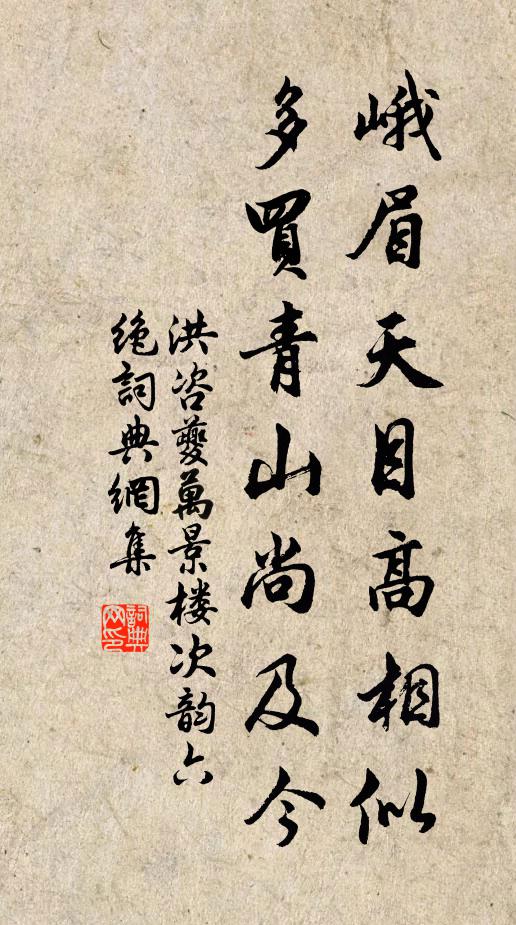 峨眉天目高相似
多買青山尚及今
洪咨夔萬景樓次韵六
絶詞典網集
詞典
网印